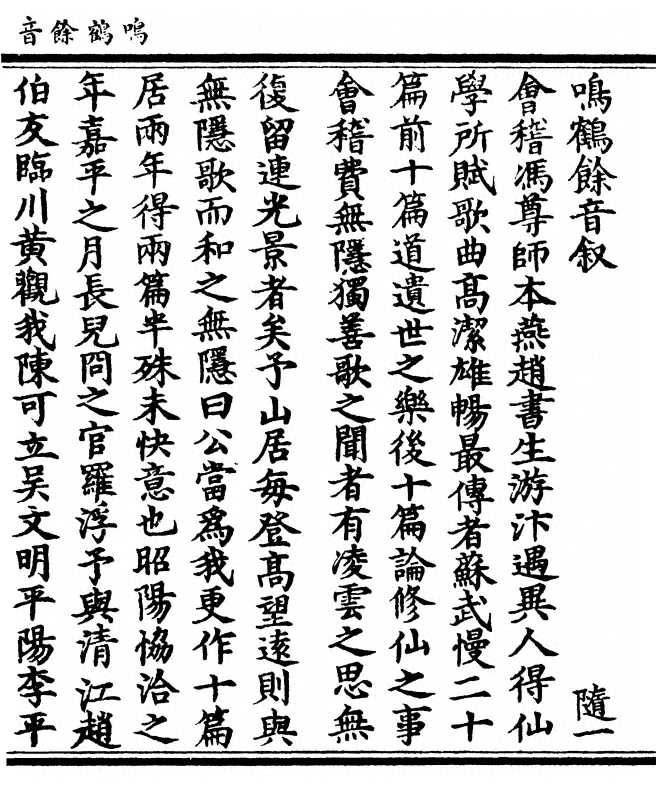 鳴鶴餘音
鳴鶴餘音叙
隨一
會稽馮尊師本燕趙書生游汴遇異人得仙
學所賦歌曲高潔雄暢最傳者蘇武慢二十
篇前十篇道遺世之樂後十篇論修仙之事
會稽費無隱獨善歌之聞者有凌雲之思無
復留連光景者矣予山居每登高望遠則與
無隱歌而和之無隱曰公當爲我更作十篇
居兩年得兩篇半殊未快意也昭陽恊洽之
年嘉平之月長兒問之官羅浮予與清江趙
伯友臨川黄觀我陳可立吴文明平陽李平